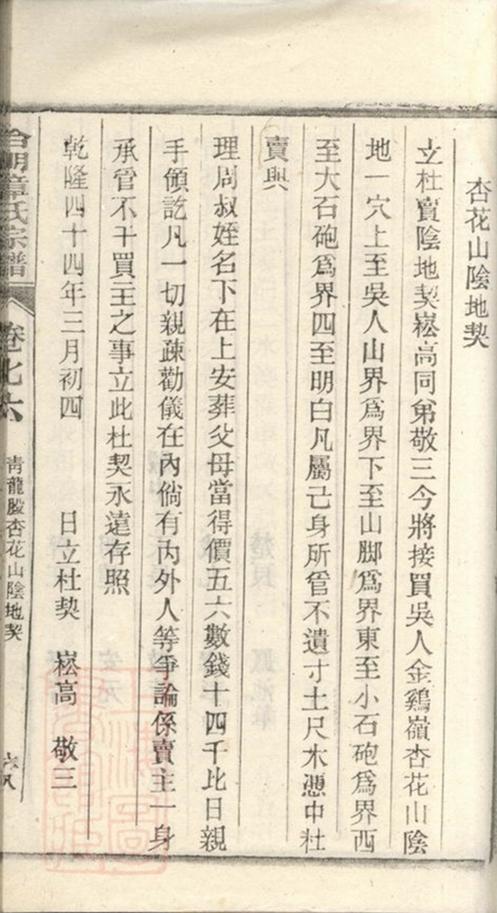 杏花山陰地契
立杜賣陰地契崧高同弟敬三今將接買吳人金鷄嶺杏花山陰
地一穴上至吳人山界爲界下至山脚爲界東至小石砲爲界西
至大石砲爲界四至明白凡屬己身所管不遺寸土尺木憑中杜
賣與
理周叔姪名下在上安葬父母當得價五六數錢十四千比日親
手領訖凡一切親疎勸儀在內倘有內外人等爭論係賣主一身
承管不干買主之事立此杜契永遠存照
乾隆四十四年三月初四 日立杜契 崧高 敬三
章氏宗譜 卷七六 青龍 杏花山陰地契